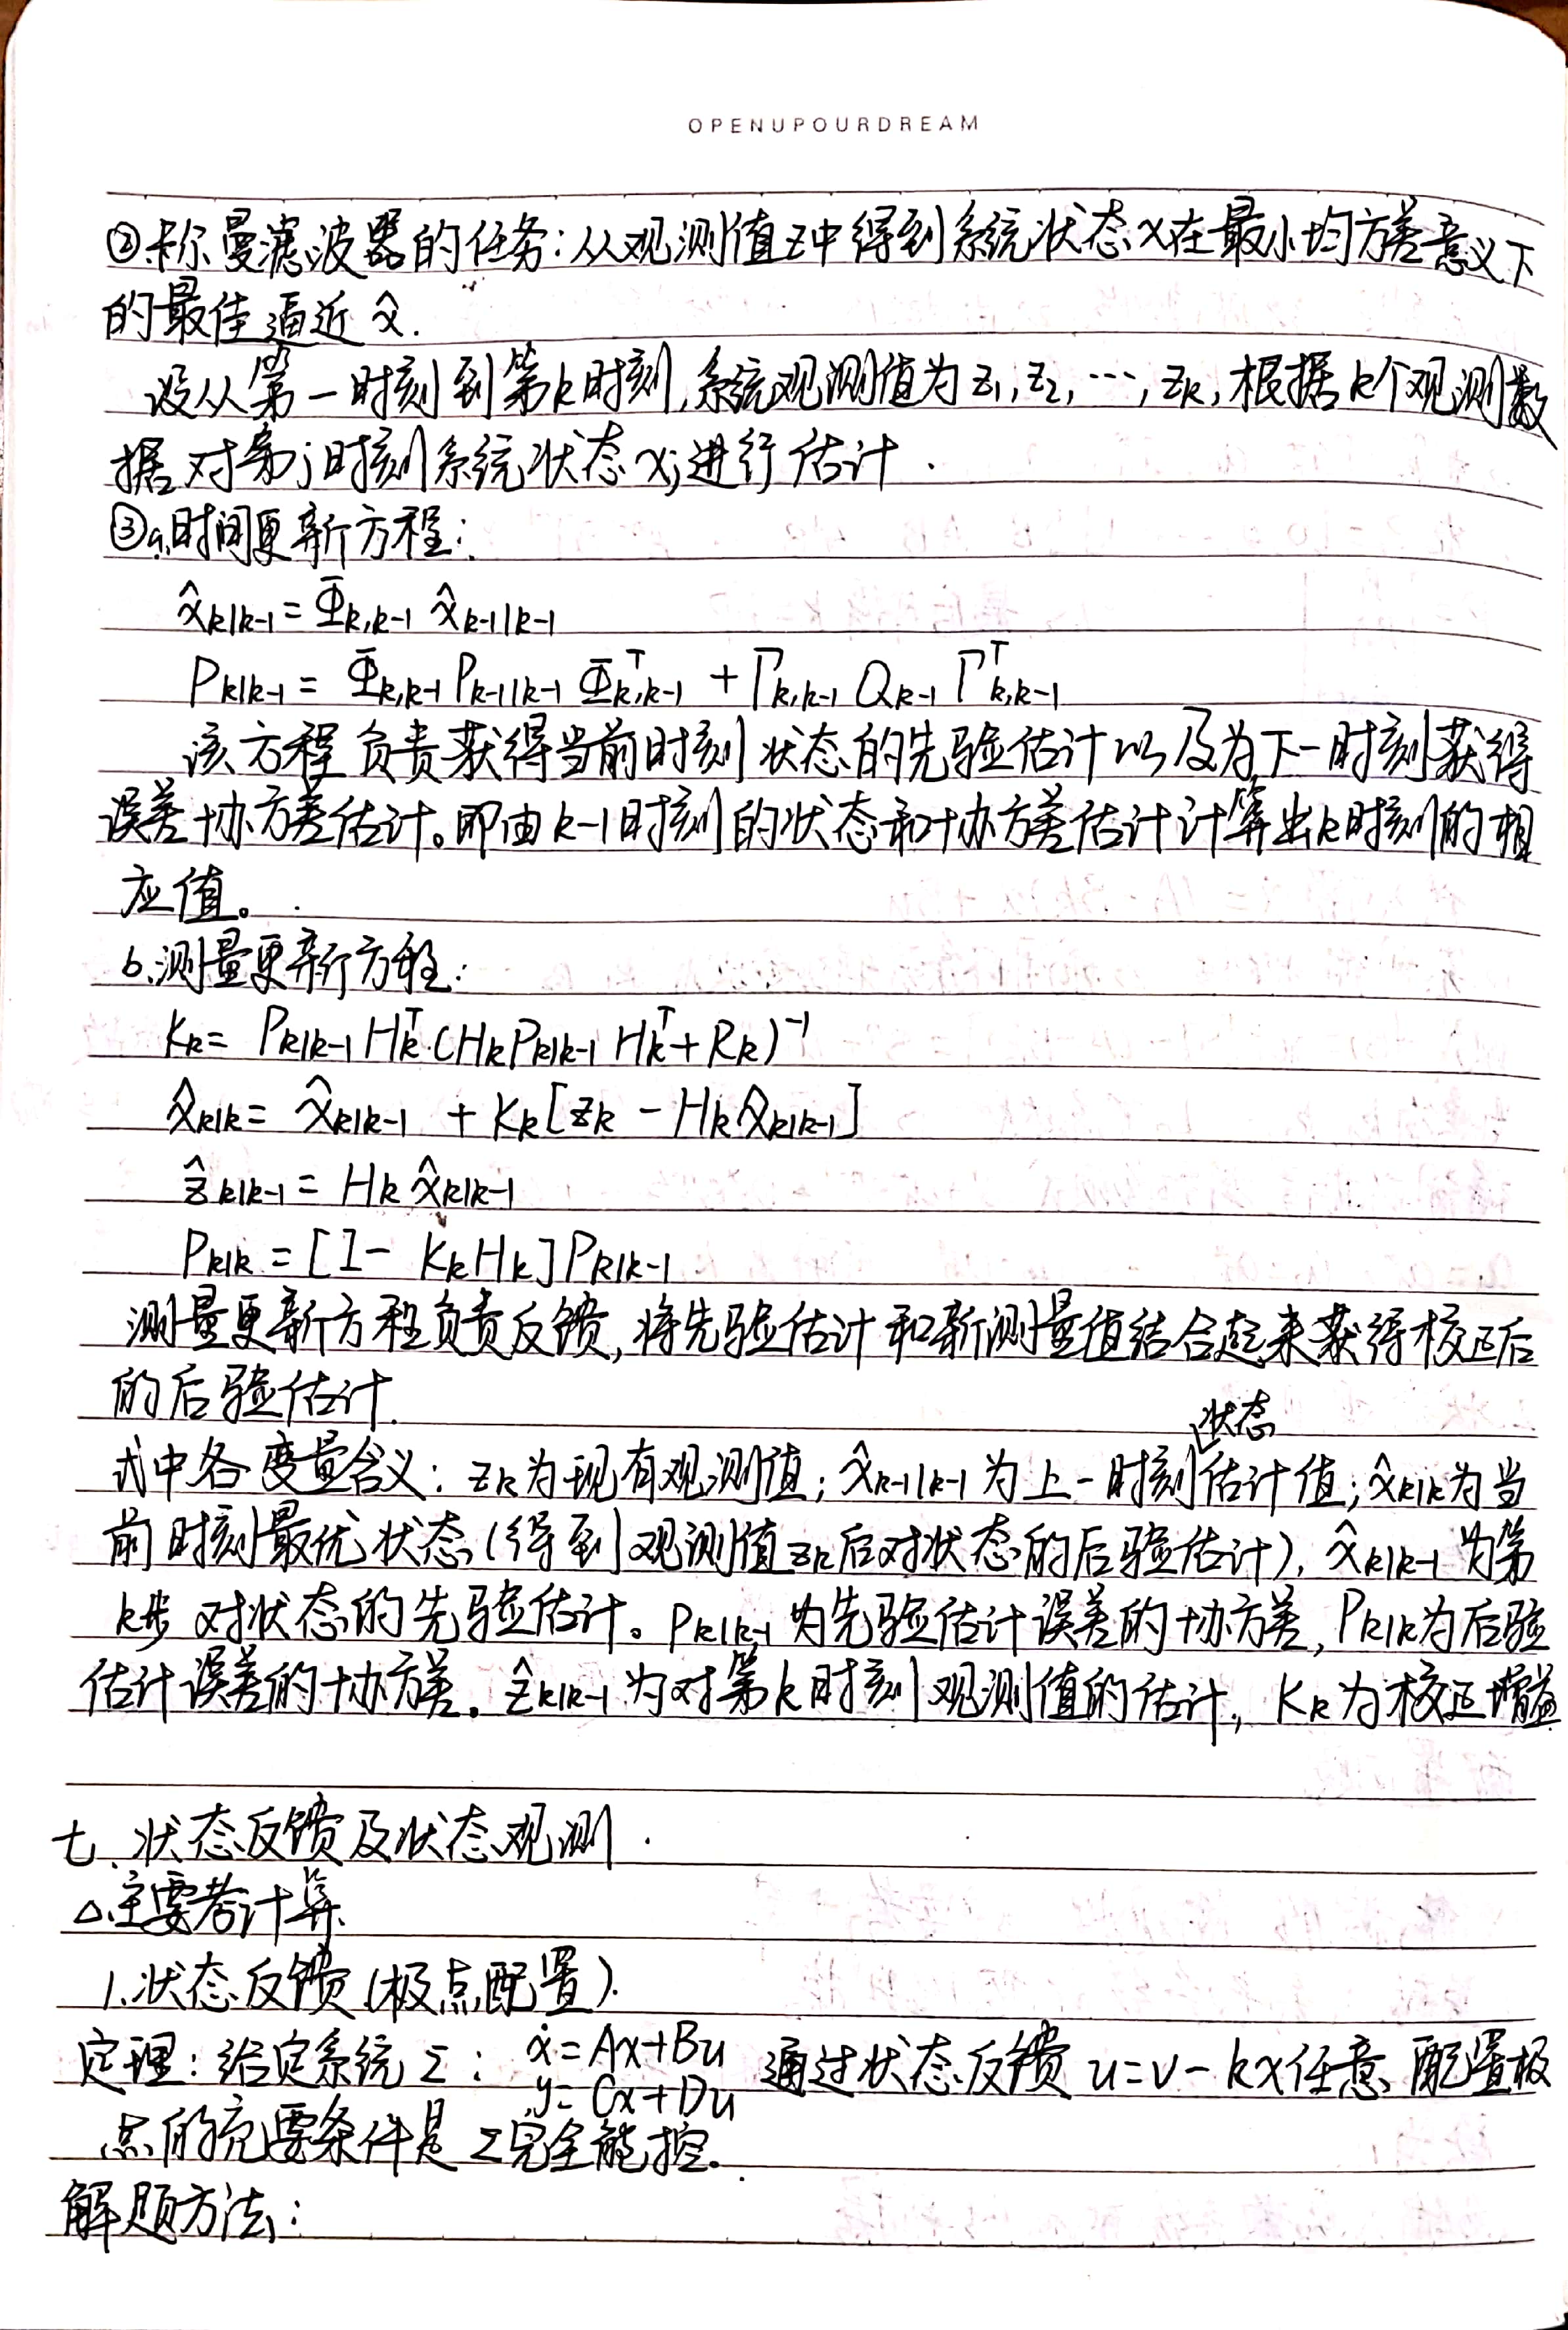 OPENUPOURDREAM
②卡尔曼滤波器的任务:从观测值z中得到系统状态x在最小均方差意义下
的最佳逼近 x̂.
设从第一时刻到第k时刻,系统观测值为 z₁, z₂, ⋯, zₖ, 根据k个观测数
据对第j时刻系统状态xⱼ进行估计.
③a.时间更新方程:
x̂ₖ|ₖ₋₁ = Φ̄ₖ,ₖ₋₁ x̂ₖ₋₁|ₖ₋₁
Pₖ|ₖ₋₁ = Φ̄ₖ,ₖ₋₁ Pₖ₋₁|ₖ₋₁ Φ̄ᵀₖ,ₖ₋₁ + Γₖ,ₖ₋₁ Qₖ₋₁ Γᵀₖ,ₖ₋₁
该方程负责获得当前时刻状态的先验估计以及为下一时刻获得
误差协方差估计。即由k-1时刻的状态和协方差估计计算出k时刻的相
应值。
b.测量更新方程:
Kₖ = Pₖ|ₖ₋₁ Hₖᵀ·(HₖPₖ|ₖ₋₁ Hₖᵀ + Rₖ)⁻¹
x̂ₖ|ₖ = x̂ₖ|ₖ₋₁ + Kₖ[zₖ - Hₖx̂ₖ|ₖ₋₁]
ẑₖ|ₖ₋₁ = Hₖ x̂ₖ|ₖ₋₁
Pₖ|ₖ = [I - KₖHₖ]Pₖ|ₖ₋₁
测量更新方程负责反馈,将先验估计和新测量值结合起来获得校正后
的后验估计.
状态
式中各变量含义: zₖ为现有观测值; x̂ₖ₋₁|ₖ₋₁ 为上一时刻估计值; x̂ₖ|ₖ为当
前时刻最优状态(得到观测值zₖ后对状态的后验估计), x̂ₖ|ₖ₋₁ 为第
k步对状态的先验估计。Pₖ|ₖ₋₁ 为先验估计误差的协方差, Pₖ|ₖ为后验
估计误差的协方差。ẑₖ|ₖ₋₁ 为对第k时刻观测值的估计, Kₖ为校正增益
七、状态反馈及状态观测.
△主要考计算.
1.状态反馈(极点配置).
定理:给定系统Σ: ẋ=Ax+Bu 通过状态反馈 u=v-kx任意配置极
y=Cx+Du
点的充要条件是Σ完全能控.
解题方法: